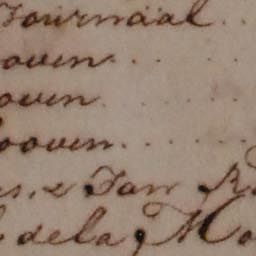 Journaal . .
ouin . . .
ouin . . .
oouin . . . .
s. & Jan R
dela Mo